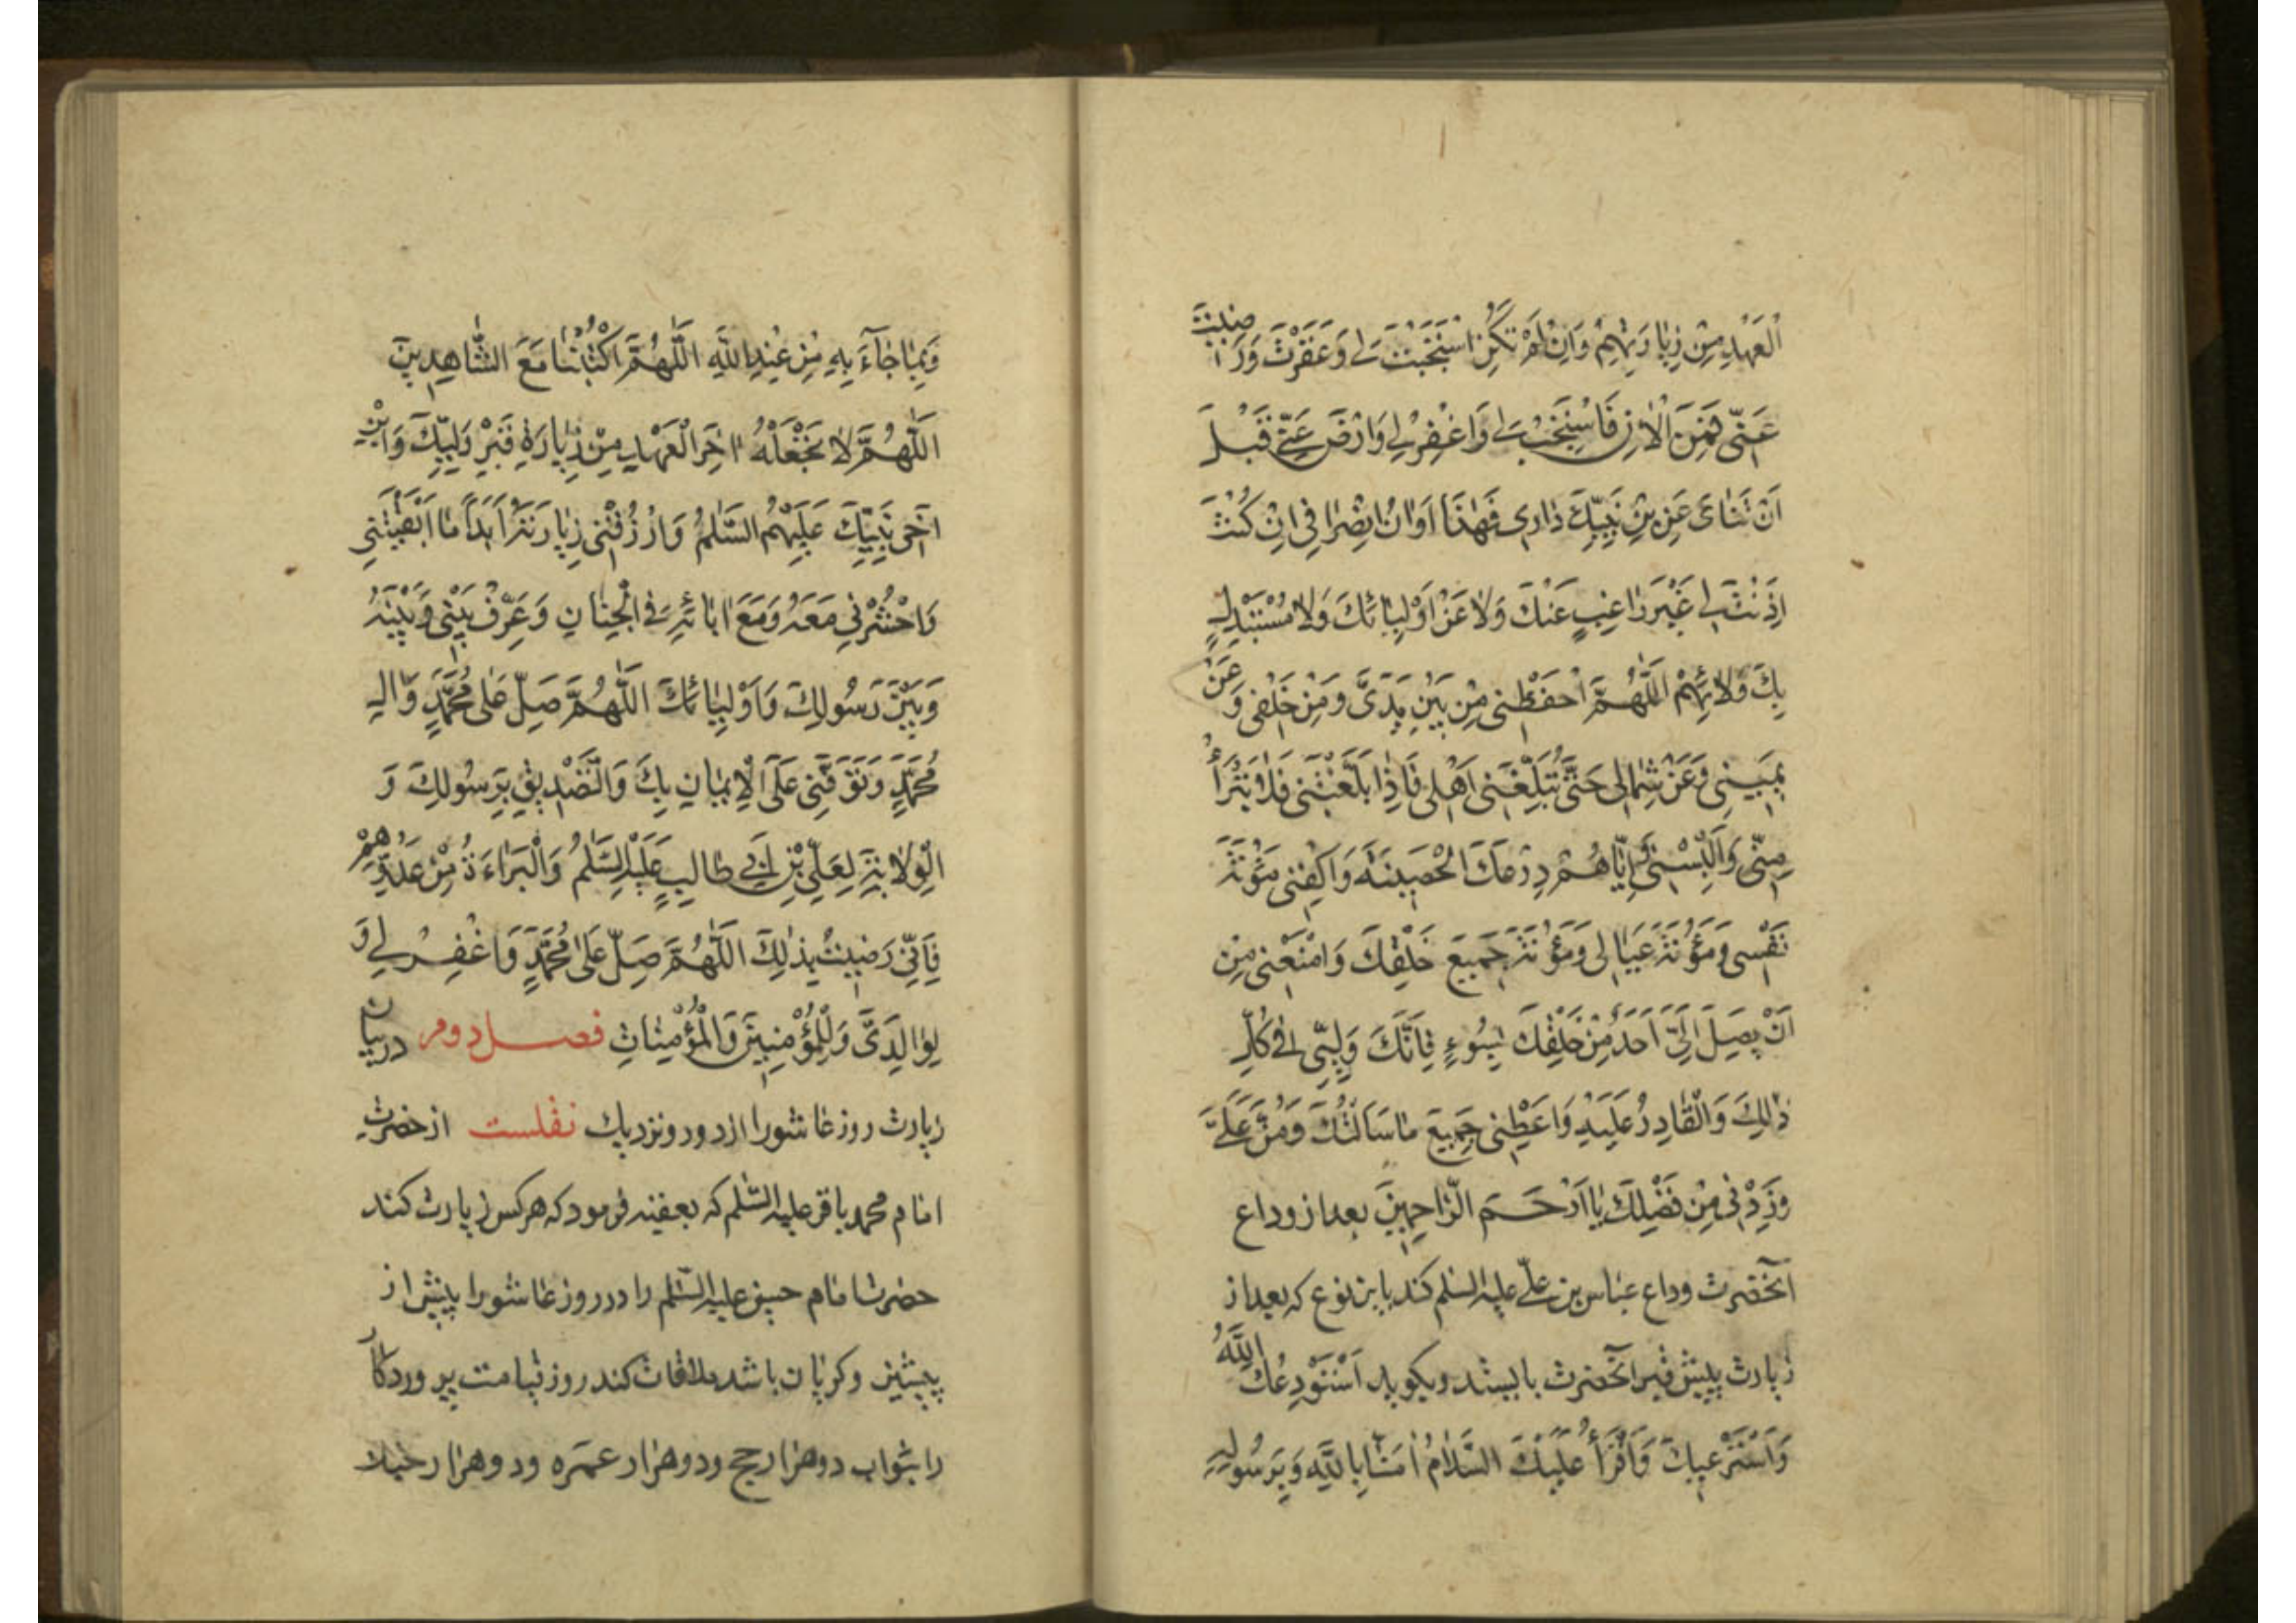 الْعَهْدِ مِنْ زِيَارَتِهِمْ وَاِنْ لَمْ تَكُنِ اسْتَجَبْتَ لِي وَغَفَرْتَ وَرَضِيتَ
عَنّي فَمِنَ الْاٰنِ فَاسْتَجِبْ لي وَاغْفِرْ لي وَارْضَ عَنّي قَبْلَ
اَنْ تَنْاىٰ عَنِ بْنِ نَبِيِّكَ دٰاري فَهٰذٰا اَوٰانُ انْصِرٰافي اِنْ كُنْتَ
اَذِنْتَ لي غَيْرَ رٰاغِبٍ عَنْكَ وَلٰا عَنْ اَوْلِيٰائِكَ وَلٰا مُسْتَبْدِلٍ
بِكَ وَلٰا بِهِمْ اَللّٰهُمَّ احْفَظْني مِنْ بَيْنِ يَدَيَّ وَمِنْ خَلْفي وَعَنْ
يَميني وَعَنْ شِمٰالي حَتّٰى تُبَلِّغَني اَهْلي فَاِذٰا بَلَّغْتَني فَلٰا تَبَرَّأْ
مِنّي وَاَلْبِسْني وَاِيّٰاهُمْ دِرْعَكَ الْحَصينَةَ وَاكْفِني مَؤُنَةَ
نَفْسي وَمَؤُنَةَ عِيٰالي وَمَؤُنَةَ جَميعِ خَلْقِكَ وَامْنَعْني مِنْ
اَنْ يَصِلَ اِلَيَّ اَحَدٌ مِنْ خَلْقِكَ بِسُوءٍ فَاِنَّكَ وَلِيّي في كُلِّ
ذٰلِكَ وَالْقٰادِرُ عَلَيْهِ وَاَعْطِني جَميعَ مٰا سَاَلْتُكَ وَمُنَّ عَلَيَّ
وَزِدْني مِنْ فَضْلِكَ يٰا اَرْحَمَ الرّٰاحِمينَ بعد از وداع
آنحضرت وداع عباس بن علي عليه السلم كند باين نوع كه بعد از
زيارت پيش قبر آنحضرت بايستد وبكويد اَسْتَوْدِعُكَ اللّٰهَ
وَاَسْتَرْعيكَ وَاَقْرَأُ عَلَيْكَ السَّلٰامُ اٰمَنّٰا بِاللّٰهِ وَبِرَسُولِهِ
وَبِمٰا جٰآءَ بِهِ مِنْ عِنْدِ اللّٰهِ اَللّٰهُمَّ اكْتُبْنٰا مَعَ الشّٰاهِدينَ
اَللّٰهُمَّ لٰا تَجْعَلْهُ اٰخِرَ الْعَهْدِ مِنْ زِيٰارَةِ قَبْرِ وَلِيِّكَ وَابْنِ
اَخي نَبِيِّكَ عَلَيْهِمُ السَّلٰمُ وَارْزُقْني زِيٰارَتَهُ اَبَداً مٰا اَبْقَيْتَني
وَاحْشُرْني مَعَهُ وَمَعَ اٰبٰائِهِ في الْجِنٰانِ وَعَرِّفْ بَيْني وَبَيْنَهُ
وَبَيْنَ رَسُولِكَ وَاَوْلِيٰائِكَ اَللّٰهُمَّ صَلِّ عَلٰى مُحَمَّدٍ وَاٰلِ
مُحَمَّدٍ وَتَوَفَّني عَلَى الْاِيمٰانِ بِكَ وَالتَّصْديقِ بِرَسُولِكَ وَ
الْوِلٰايَةِ لِعَلِيِّ بْنِ اَبي طٰالِبٍ عَلَيْهِ السَّلٰمُ وَالْبَرٰاءَةُ مِنْ عَدُوِّهِمْ
فَاِنّي رَضيتُ بِذٰلِكَ اَللّٰهُمَّ صَلِّ عَلٰى مُحَمَّدٍ وَاغْفِرْ لي وَ
لِوٰالِدَيَّ وَلِلْمُؤْمِنينَ وَالْمُؤْمِنٰاتِ فصل دوم در بيان
زيارت روز عاشورا از دور ونزديك نقلست از حضرت
امام محمد باقر عليه السلم كه بعقبه فرمود كه هر كس زيارت كند
حضرت امام حسين عليه السلم را در روز عاشورا پيش از
پيشين وكريان باشد ملاقات كند روز قيامت پروردكار
را بثواب دو هزار حج ودو هزار عمره ودو هزار